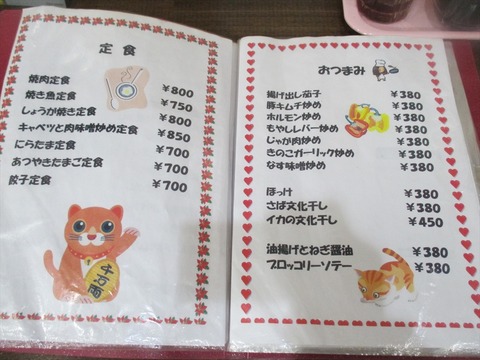 定食
焼肉定食 ¥800
焼き魚定食 ¥750
しょうが焼き定食 ¥800
キャベツと肉味噌炒め定食 ¥850
にらたま定食 ¥700
あつやきたまご定食 ¥700
餃子定食 ¥700
千万両
おつまみ
揚げ出し茄子 ¥380
豚キムチ炒め ¥380
ホルモン炒め ¥380
もやしレバー炒め ¥380
じゃが肉炒め ¥380
きのこガーリック炒め ¥380
なす味噌炒め ¥380
ほっけ ¥380
さば文化干し ¥380
イカの文化干し ¥450
油揚げとねぎ醤油 ¥380
ブロッコリーソテー ¥380